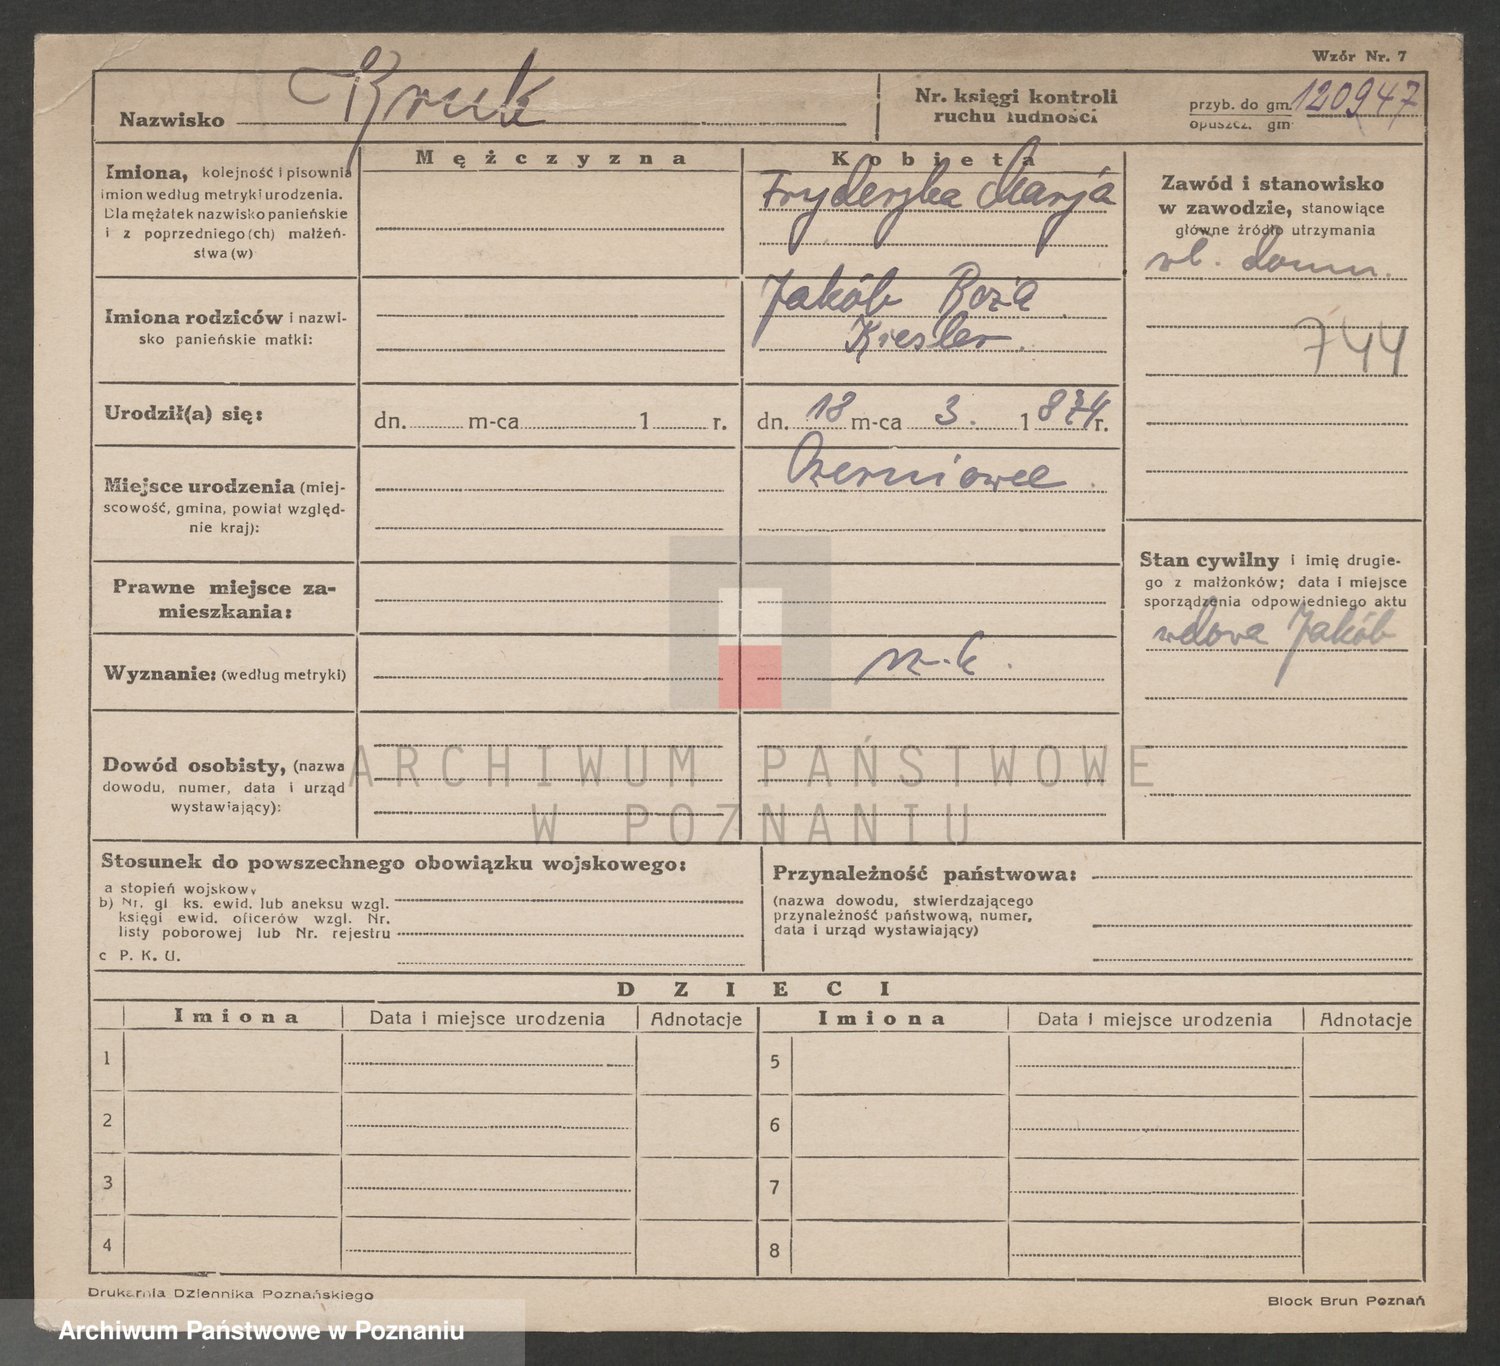 Wzór Nr. 7
Nazwisko Kruk
Nr. księgi kontroli
ruchu ludności
przyb. do gm. 120947
opuszcz. gm
Mężczyzna
Kobieta
Imiona, kolejność i pisownia
imion według metryki urodzenia.
Dla mężatek nazwisko panieńskie
i z poprzedniego(ch) małżeń-
stwa(w)
Fryderyka Marja
Zawód i stanowisko
w zawodzie, stanowiące
główne źródło utrzymania
wł. domu.
744
Imiona rodziców i nazwi-
sko panieńskie matki:
Jakób Roz'a
Kiesler.
Urodził(a) się:
dn. m-ca 1 r.
dn. 18 m-ca 3. 1874 r.
Miejsce urodzenia (miej-
scowość, gmina, powiat względ-
nie kraj):
Czerniowce.
Prawne miejsce za-
mieszkania:
Stan cywilny i imię drugie-
go z małżonków; data i miejsce
sporządzenia odpowiedniego aktu
wdowa Jakób
Wyznanie: (według metryki)
rz.-k.
Dowód osobisty, (nazwa
dowodu, numer, data i urząd
wystawiający):
ARCHIWUM PAŃSTWOWE
W POZNANIU
Stosunek do powszechnego obowiązku wojskowego:
a stopień wojskowy
b) Nr. gl ks. ewid. lub aneksu wzgl.
księgi ewid. oficerów wzgl. Nr.
listy poborowej lub Nr. rejestru
c P. K. U.
Przynależność państwowa:
(nazwa dowodu, stwierdzającego
przynależność państwową, numer,
data i urząd wystawiający)
DZIECI
Imiona Data i miejsce urodzenia Adnotacje Imiona Data i miejsce urodzenia Adnotacje
1 5
2 6
3 7
4 8
Drukarnia Dziennika Poznańskiego
Block Brun Poznań
Archiwum Państwowe w Poznaniu